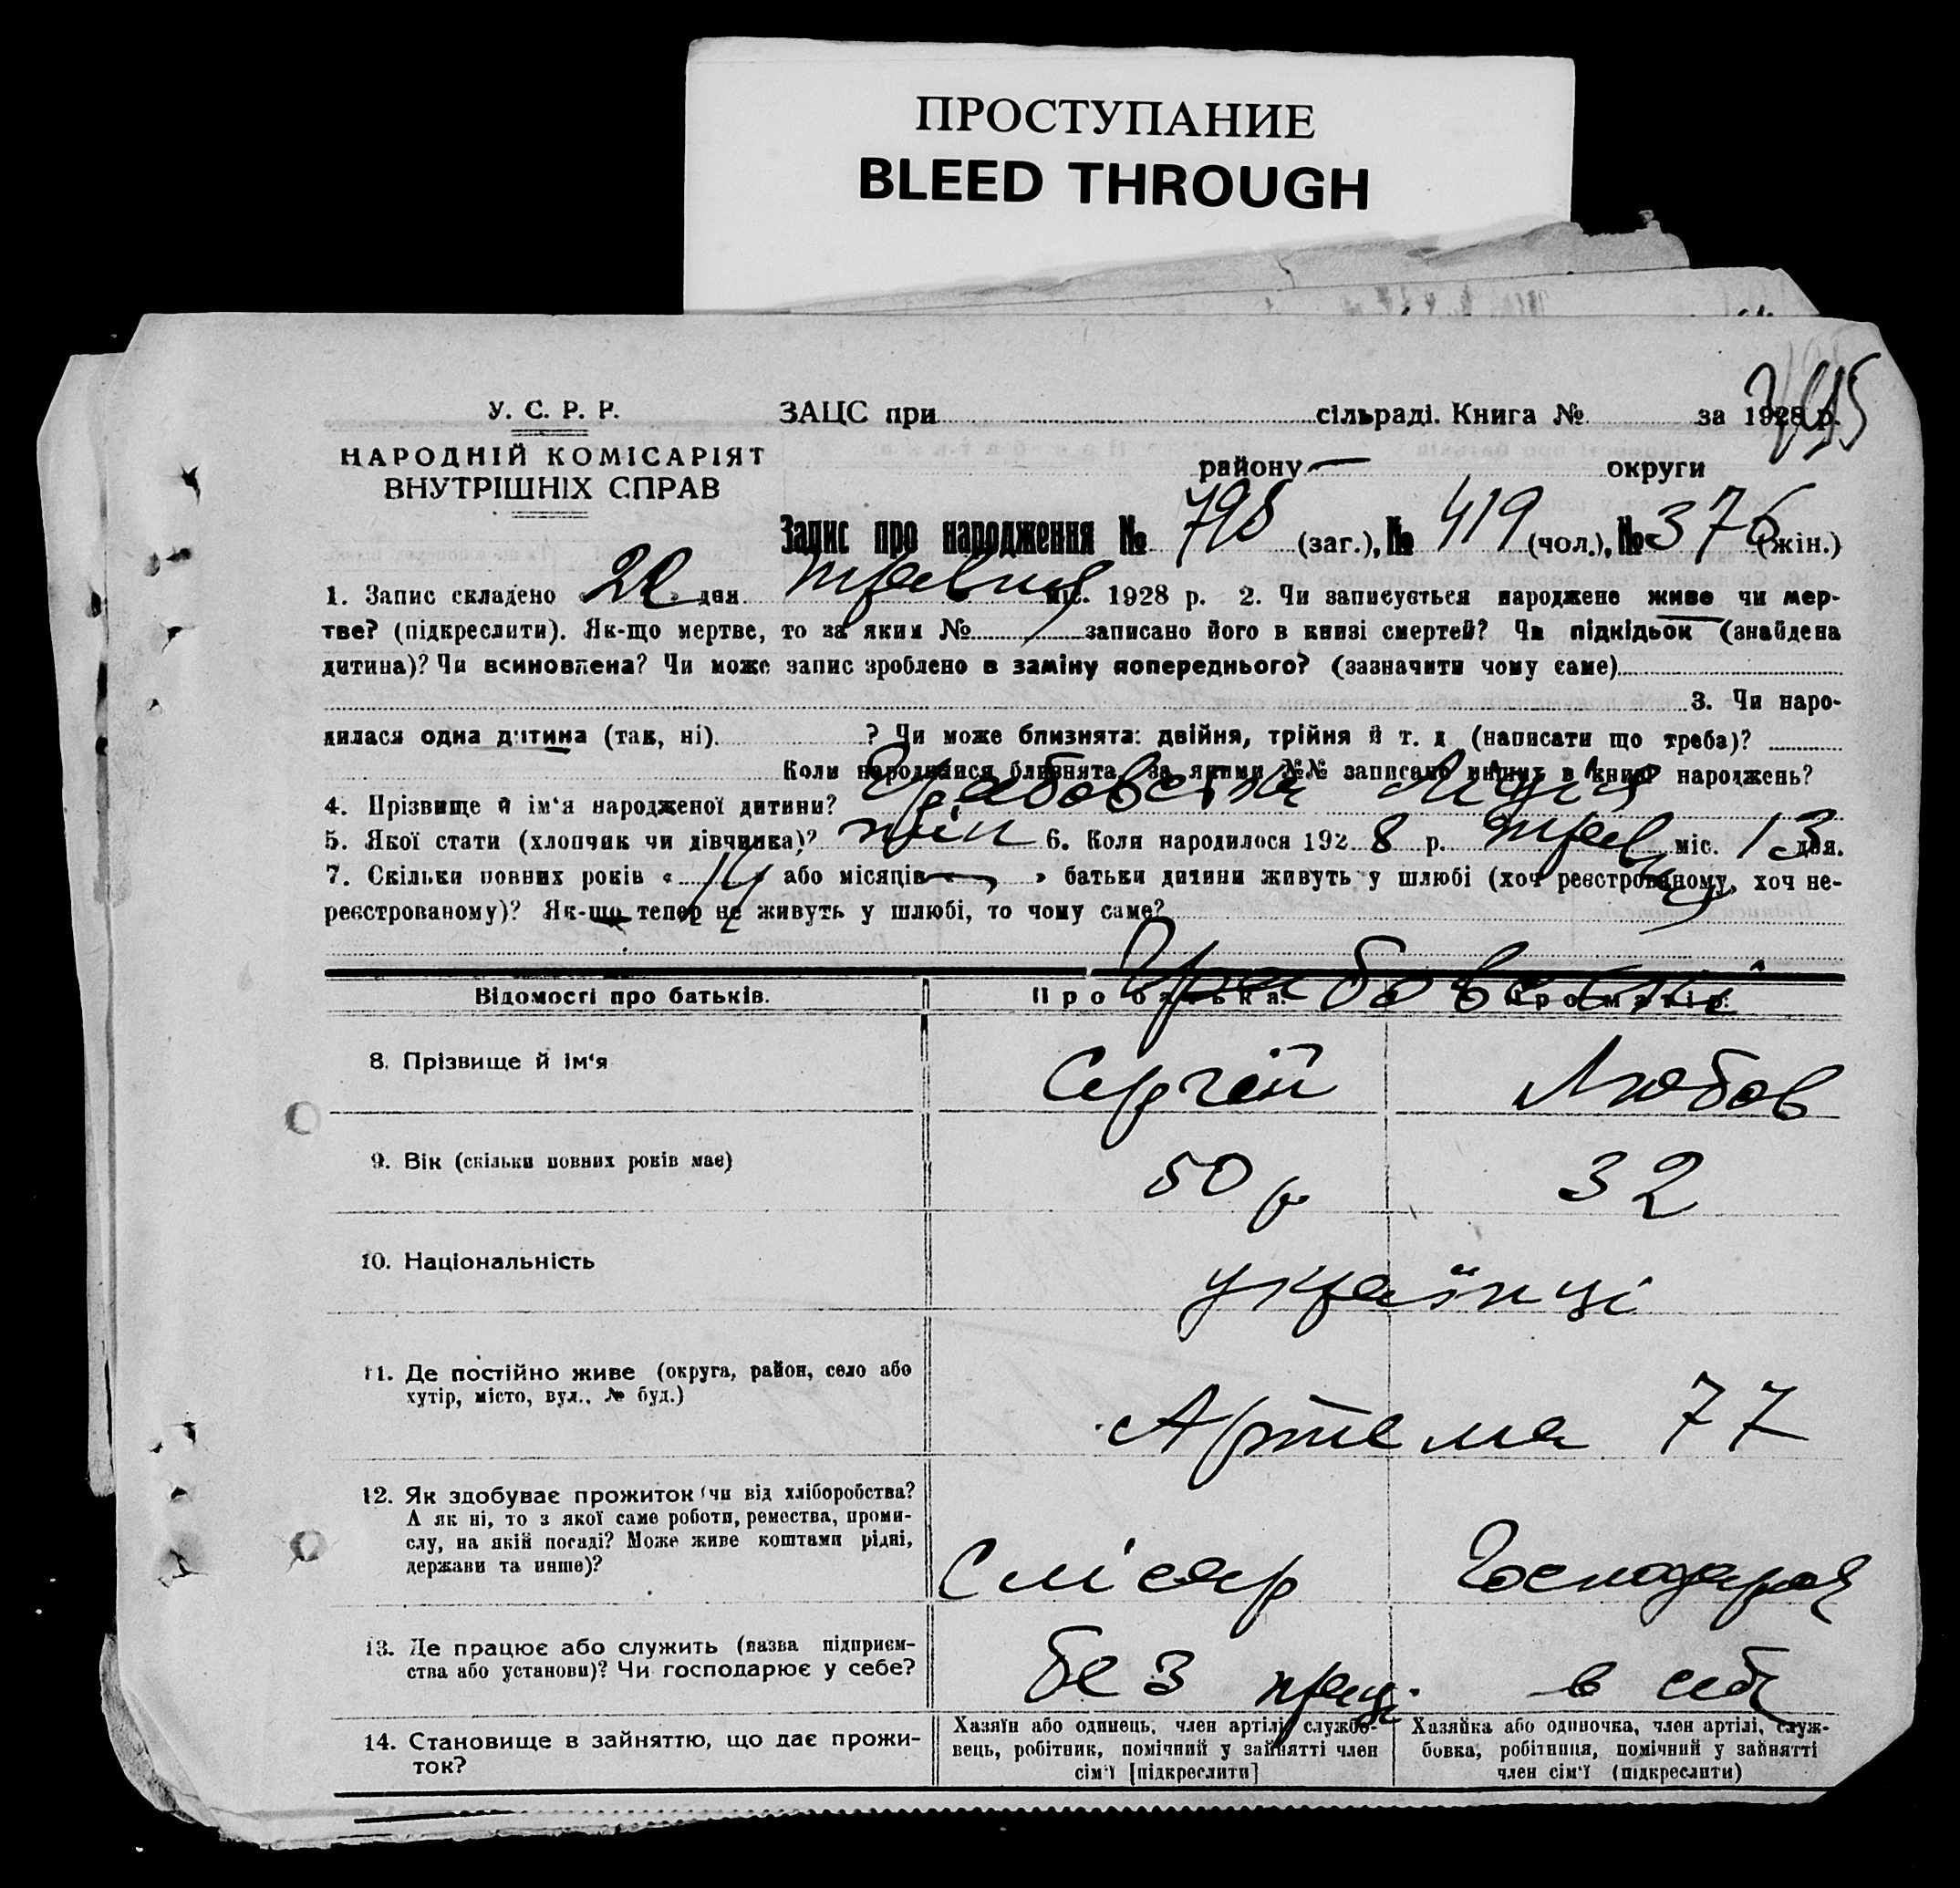 ПРОСТУПАНИЕ
BLEED THROUGH
У. С. Р. Р.
НАРОДНІЙ КОМІСАРІЯТ
ВНУТРІШНІХ СПРАВ
ЗАЦС при сільраді. Книга № за 1928 р.
району — округи
Запис про народження № 795 (заг.), № 419 (чол.), № 376 (жін.)
1. Запис складено « » дня травня міс. 1928 р. 2. Чи записується народжене живе чи мер-
тве? (підкреслити). Як-що мертве, то за яким № записано його в книзі смертей? Чи підкідьок (знайдена
дитина)? Чи всиновлена? Чи може запис зроблено в заміну попереднього? (зазначити чому саме)
3. Чи наро-
дилася одна дитина (так, ні) ? Чи може близнята: двійня, трійня й т. д (написати що треба)?
Коли народилися близнята, за якими №№ записано инших в книзі народжень?
4. Прізвище й ім'я народженої дитини? Грабовська Лідія
5. Якої стати (хлопчик чи дівчинка)? жін 6. Коли народилося 1928 р. травня міс. 13 дня.
7. Скільки повних років « 14 » або місяців « — » батьки дитини живуть у шлюбі (хоч реєстрованому, хоч не-
реєстрованому)? Як-що тепер не живуть у шлюбі, то чому саме?
Грабовські
Відомості про батьків. Про батька. Про матір.
8. Прізвище й ім'я Сергій Любов
9. Вік (скільки повних років має) 50 р 32
10. Національність українці
11. Де постійно живе (округа, район, село або
хутір, місто, вул., № буд.) Артема 77
12. Як здобуває прожиток (чи від хліборобства?
А як ні, то з якої саме роботи, ремества, проми-
слу, на якій посаді? Може живе коштами рідні,
держави та инше)? Слісар Господарка
13. Де працює або служить (назва підприєм-
ства або установи)? Чи господарює у себе? без праці в себе
14. Становище в зайняттю, що дає прожи-
ток?
Хазяїн або одинець, член артілі, службо-
вець, робітник, помічний у зайнятті член
сім'ї [підкреслити]
Хазяйка або одиночка, член артілі, служ-
бовка, робітниця, помічний у зайнятті
член сім'ї (підкреслити)